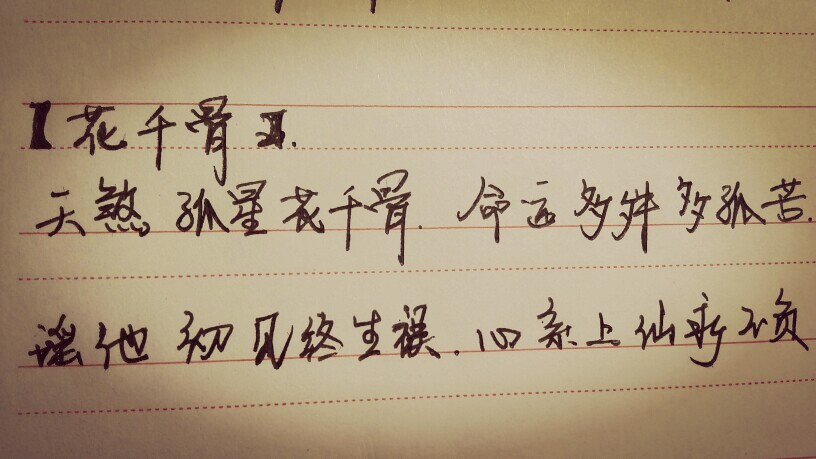 【花千骨】.
天煞孤星花千骨.命运多舛多孤苦.
瑶池初见终生误.心系上仙永不负